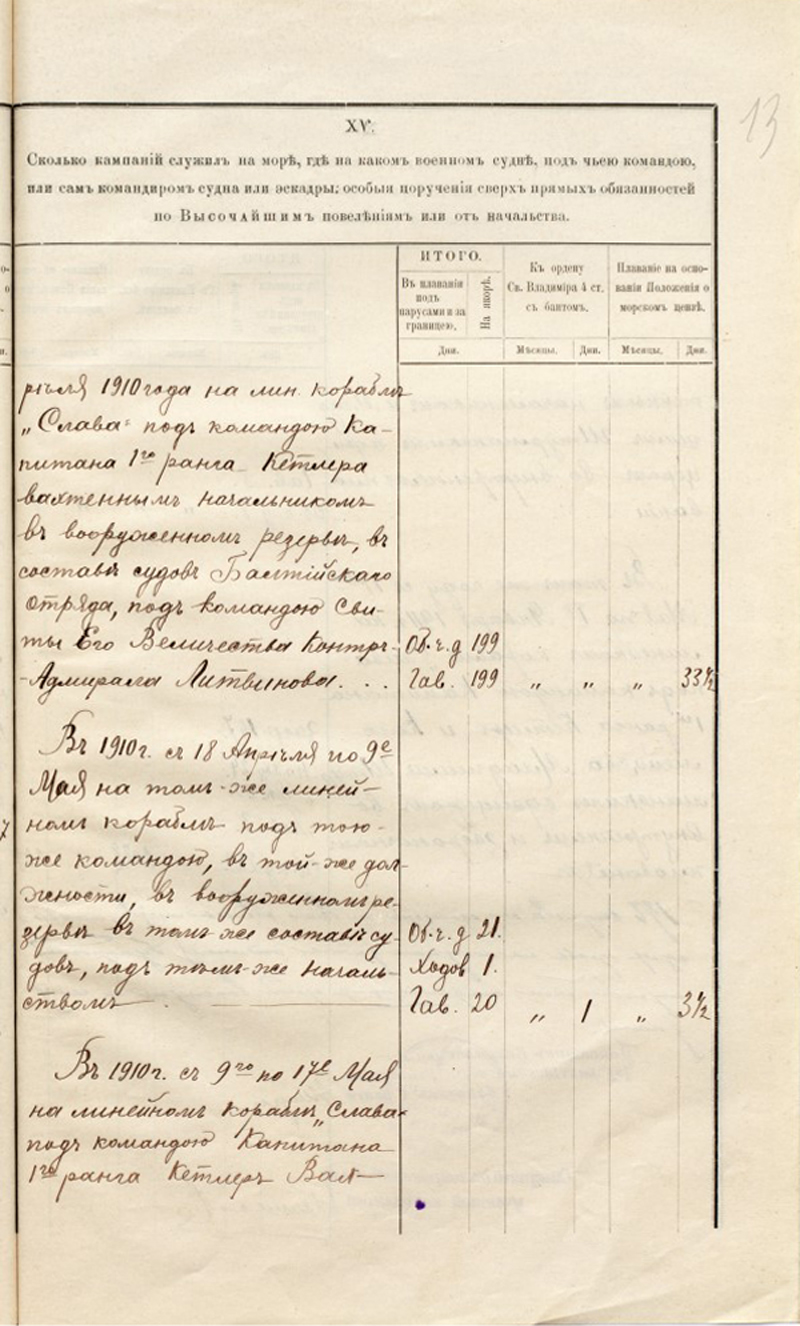 13
XV.
Сколько кампаній служилъ на морѣ, гдѣ на какомъ военномъ суднѣ, подъ чьею командою,
или самъ командиромъ судна или эскадры; особыя порученія сверхъ прямыхъ обязанностей
по Высочайшимъ повелѣніямъ или отъ начальства.
ИТОГО.
Въ плаваніи
подъ
парусами и за
границею.
На якорѣ.
Дни.
Къ ордену
Св. Владиміра 4 ст.
съ бантомъ.
Мѣсяцы.
Дни.
Плаваніе на осно-
ваніи Положенія о
морскомъ цензѣ.
Мѣсяцы.
Дни.
рѣля 1910 года на лин. кораблѣ
„Слава" подъ командою Ка-
питана 1го ранга Кетлера
вахтеннымъ начальникомъ
въ вооруженномъ резервѣ, въ
составѣ судовъ Балтійскаго
Отряда, подъ командою Сви-
ты Его Величества Контръ- Об. ч. д 199
-Адмирала Литвинова. . . Гав. 199 „ „ „ 33½
Въ 1910 г. съ 18 Апрѣля по 9е
Мая на томъ-же линей-
номъ кораблѣ подъ тою-
же командою, въ той-же дол-
жности, въ вооруженномъ ре-
зервѣ въ томъ-же составѣ су- Об. ч. д 21.
довъ, подъ тѣмъ-же началь- Ходов 1.
ствомъ . Гав. 20 „ 1 „ 3½
Въ 1910 г. съ 9го по 17е Мая
на линейномъ кораблѣ „Слава"
подъ командою Капитана
1го ранга Кетлеръ Вах-